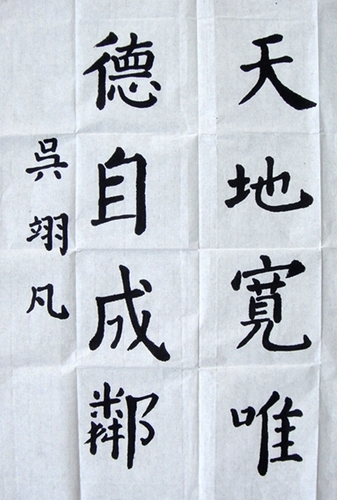 天地寬唯
德自成鄰
吳翊凡